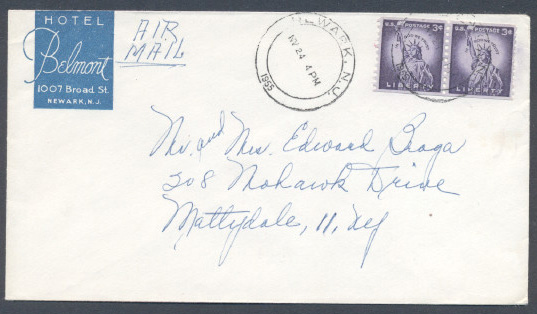 HOTEL
Belmont
1007 Broad St.
NEWARK, N.J.
AIR
MAIL
NEWARK, N.J.
NV 24 4 PM
1955
U.S. POSTAGE 3¢
LIBERTY
U.S. POSTAGE 3¢
LIBERTY
Mr. and Mrs. Edward Braga
208 Mohawk Drive
Mattydale, 11, NY